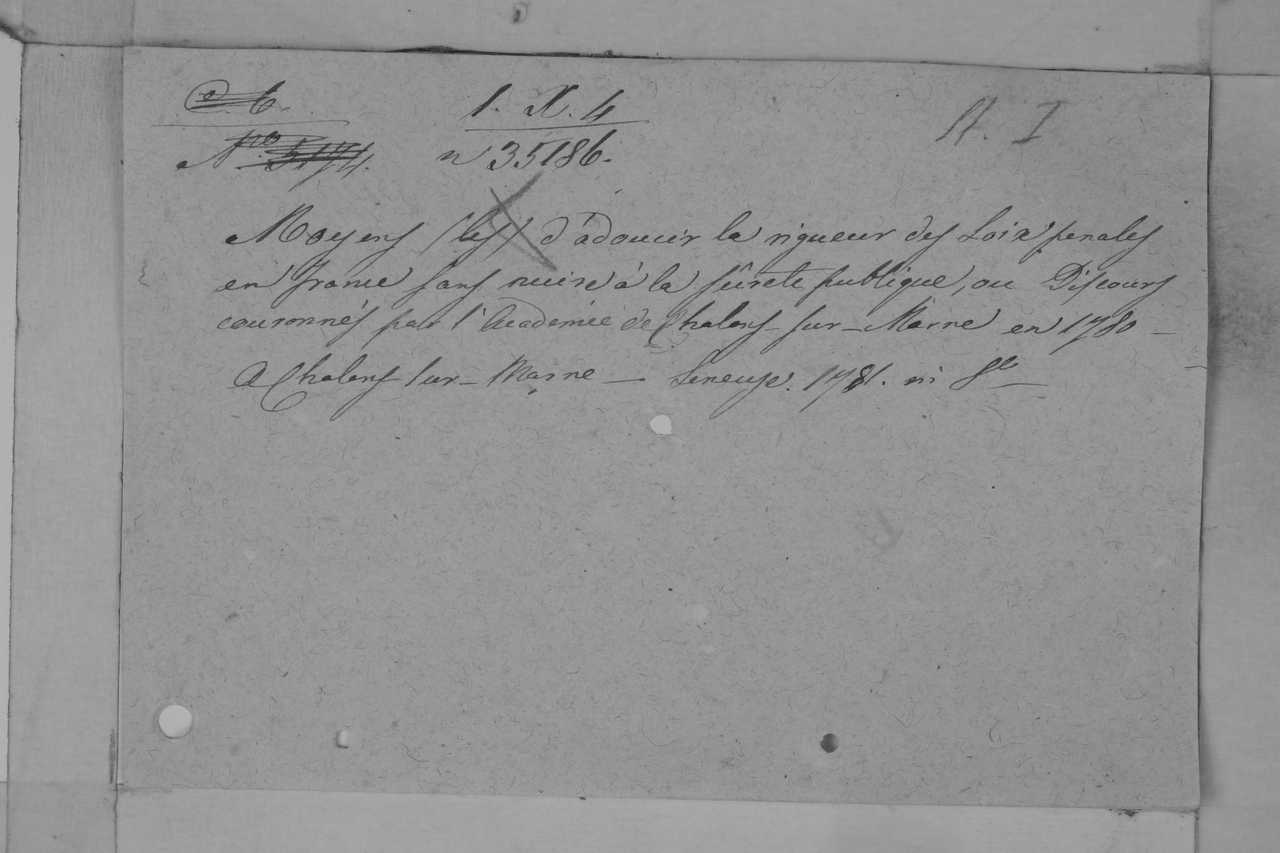 C. 6. 1. X. 4 A. I
Nro 5174. n 35186.
Moyens (les) d'adoucir la rigueur des Loix penales
en france sans nuire à la sûreté publique, ou Discours
couronnés par l'Academie de Chalons-sur-Marne en 1780 —
A Chalons-sur-Marne — Seneuze. 1781. in 8vo —